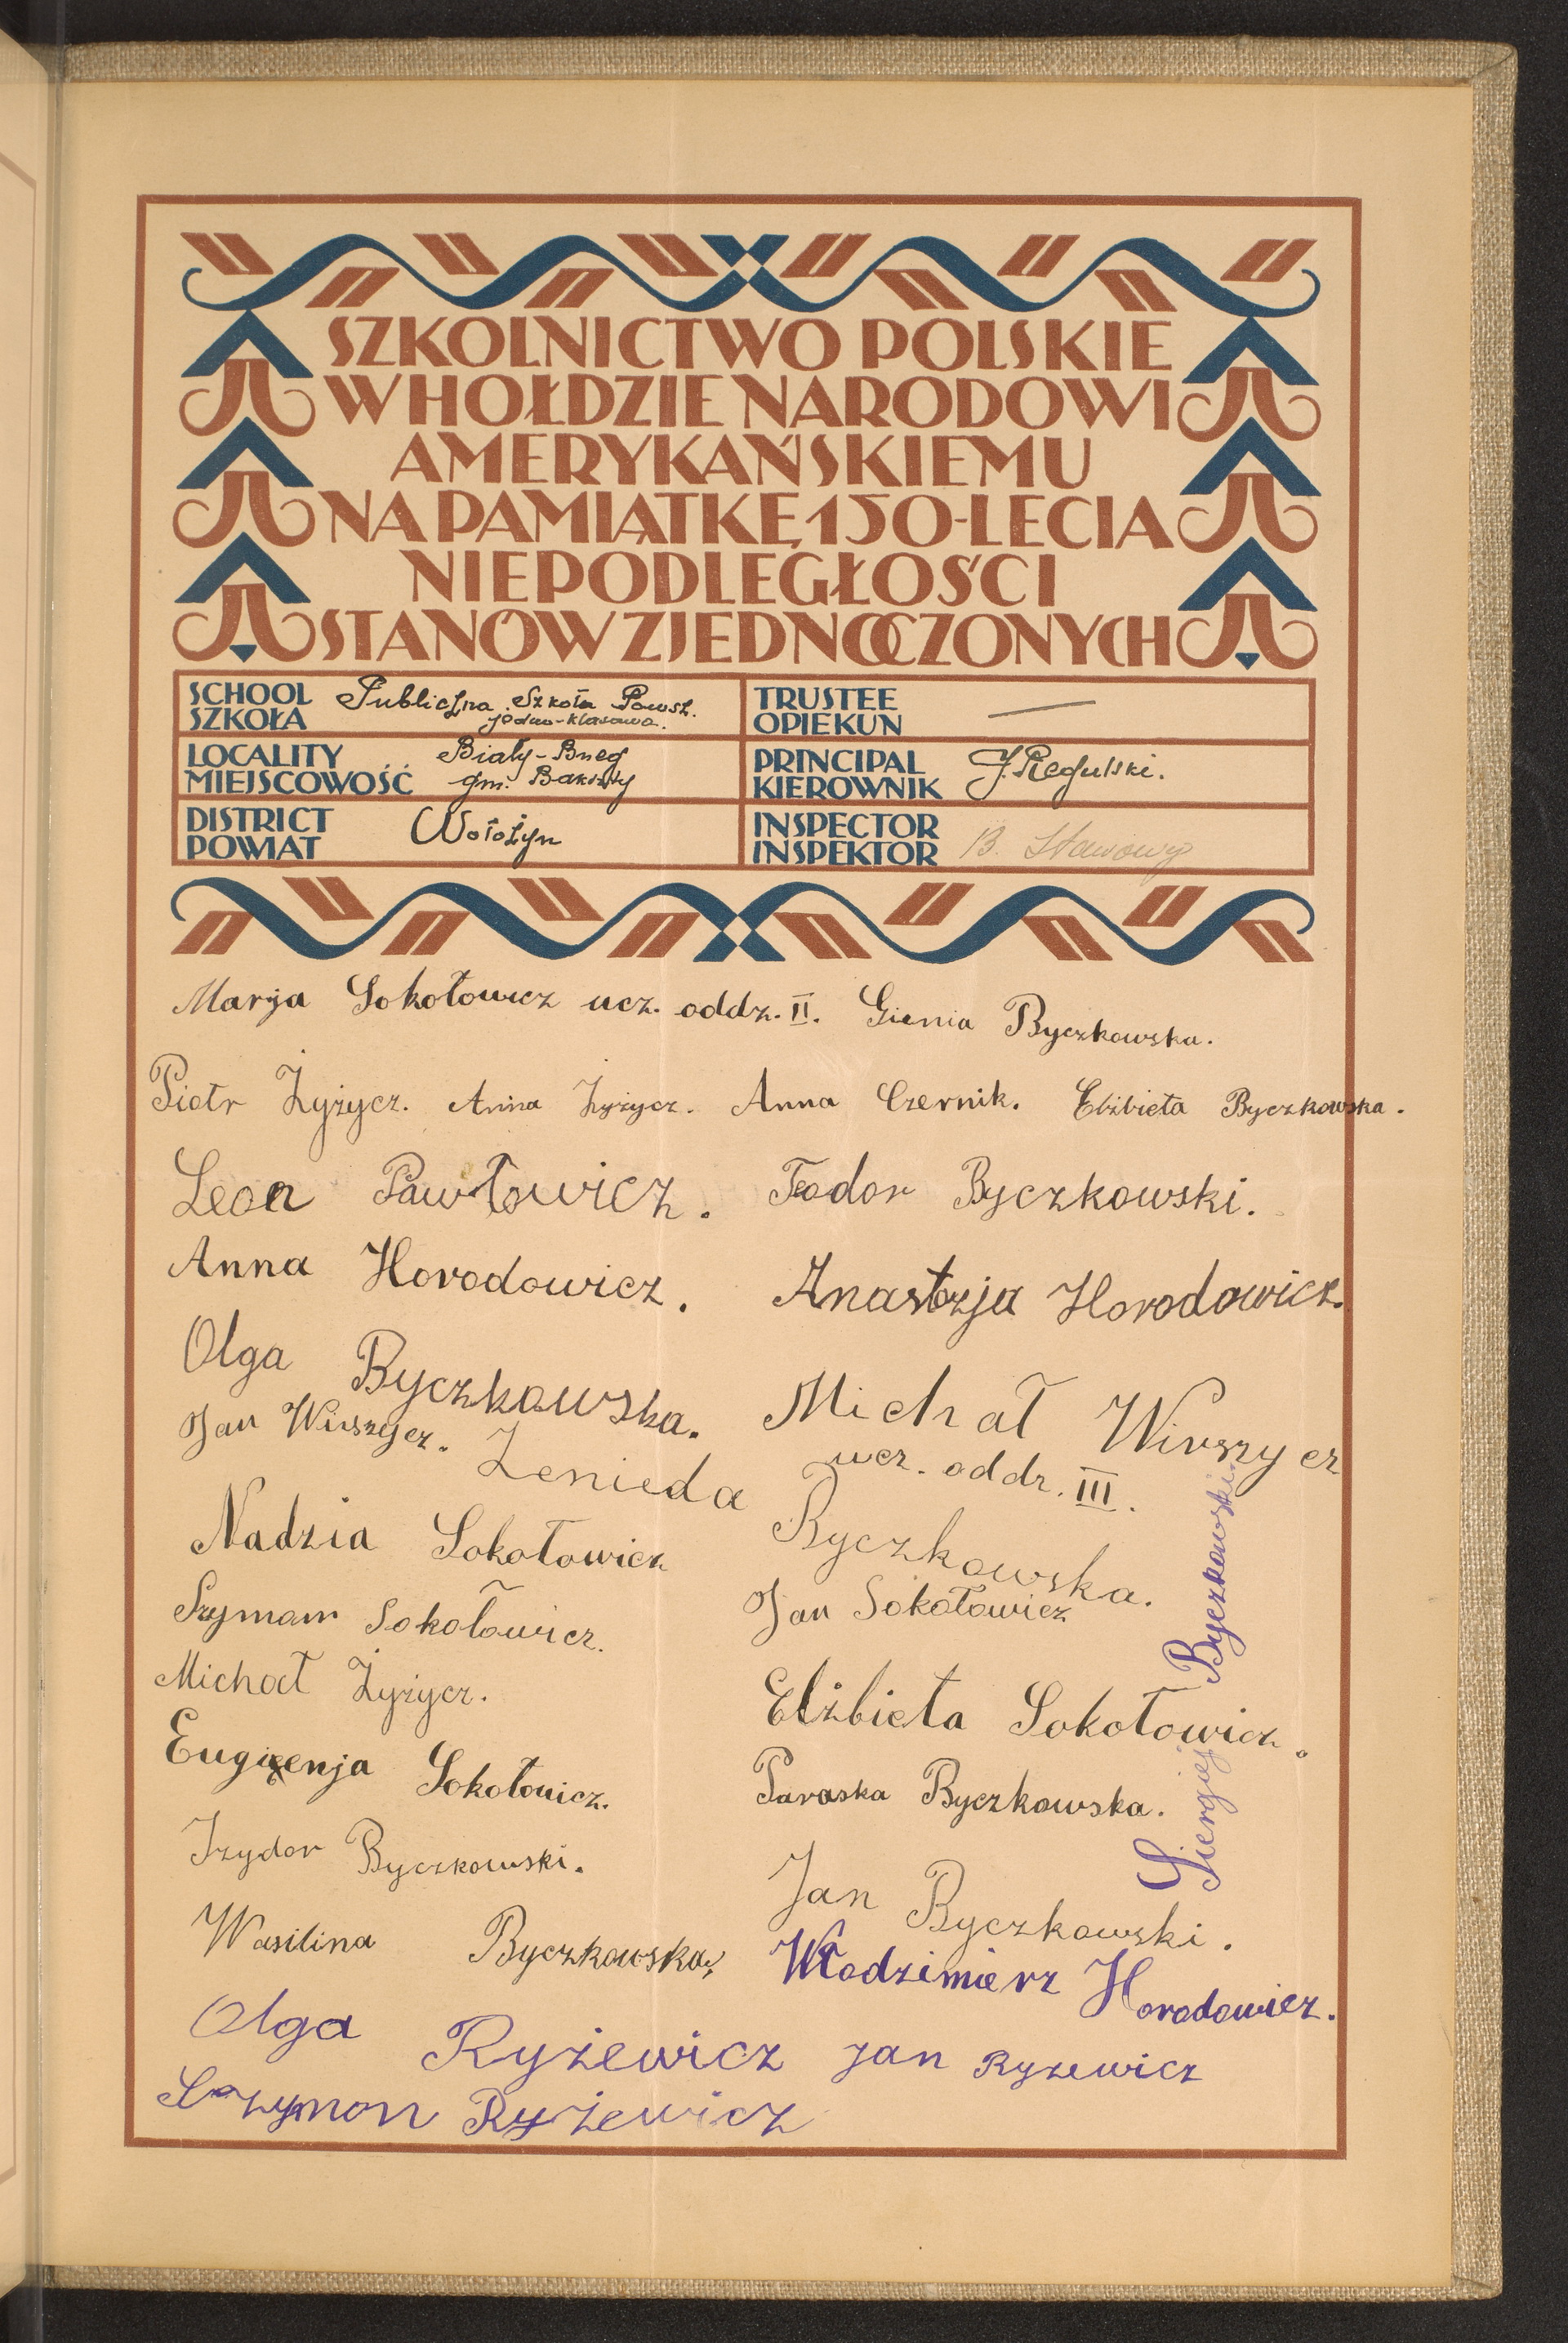 SZKOLNICTWO POLSKIE
W HOŁDZIE NARODOWI
AMERYKAŃSKIEMU
NA PAMIĄTKĘ 150-LECIA
NIEPODLEGŁOŚCI
STANÓW ZJEDNOCZONYCH
SCHOOL
SZKOŁA
Publiczna Szkoła Powsz.
jedno-klasowa.
TRUSTEE
OPIEKUN
LOCALITY
MIEJSCOWOŚĆ
Biały-Brzeg
gm. Bakszty
PRINCIPAL
KIEROWNIK
J. Piegulski.
DISTRICT
POWIAT
Wołożyn
INSPECTOR
INSPEKTOR
B. Stawowy
Marja Sokołowicz ucz. oddz. II. Gienia Byczkowska.
Piotr Żyżycz. Anna Żyżycz. Anna Czernik. Elżbieta Byczkowska.
Leon Pawłowicz. Teodor Byczkowski.
Anna Horodowicz. Anastazja Horodowicz.
Olga Byczkowska. Michał Wirszycz
ucz. oddz. III.
Jan Wirszycz. Zenieda Byczkowska.
Nadzia Sokołowicz
Szyman Sokołowicz. Jan Sokołowicz
Michał Żyżycz. Elżbieta Sokołowicz.
Eugenja Sokołowicz. Paraska Byczkowska.
Izydor Byczkowski. Jan Byczkowski.
Wasilina Byczkowska. Włodzimierz Horodowicz.
Olga Ryżewicz Jan Ryżewicz
Szymon Ryżewicz
Siergiej Byczkowski.